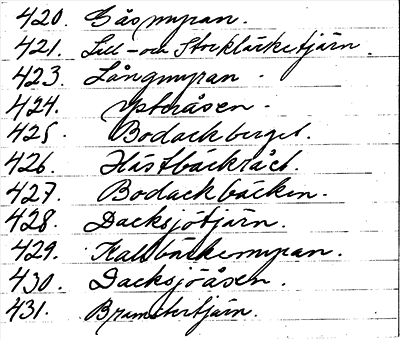 420. Gåsmyran.
421. Lill- och Storklärketjärn.
423. Långmyran.
424. Ypteråsen.
425. Bodackberget.
426. Hästbäckråct.
427. Bodackbäcken.
428. Dacksjötjärn.
429. Kallbäckemyran.
430. Dacksjöåsen.
431. Brumstertjärn.